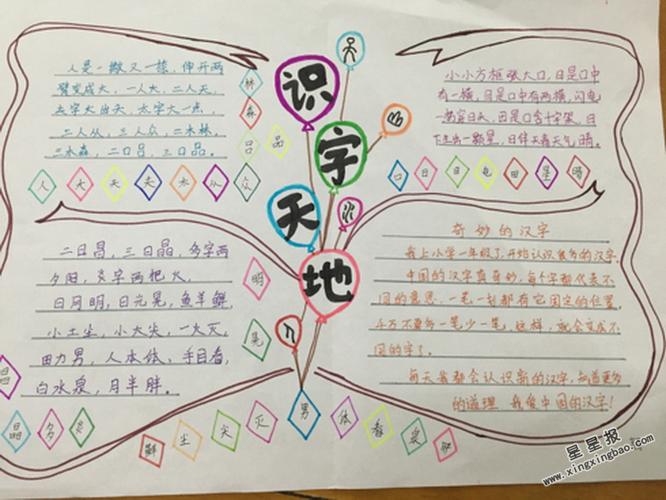 识
字
天
地
人是一撇又一捺，伸开两
臂变成大，一人大，二人天，
夫字大出头，太字大一点，
二人从，三人众，二木林，
三木森，二口吕，三口品。
林
森
吕
品
人 大 天 夫 木 从 众
小小方框张大口，日是口中
有一横，目是口中有两横，闪电
田是口含十字架，日
下生出一颗星，日伴天气晴。
口 日 目 电 田 星 晴
二日昌，三日晶，多字两
夕阳，炎字两把火。
日月明，日光晃，鱼羊鲜，
小土尘，小大尖，一火灭，
田力男，人本体，手目看，
白水泉，月半胖。
明
晃
昌
晶 多 炎
鲜 尘 尖 灭 男 体 看 泉 胖
奇妙的汉字
我上小学一年级了，开始认识许多的汉字，
中国的汉字真奇妙，每个字都代表不
同的意思，一笔一划都有它固定的位置，
千万不要多一笔少一笔，这样，就会变成不
同的字了。
每天我都会认识新的汉字，知道更多
的道理，我爱中国的汉字！
星星报
www.xingxingbao.com